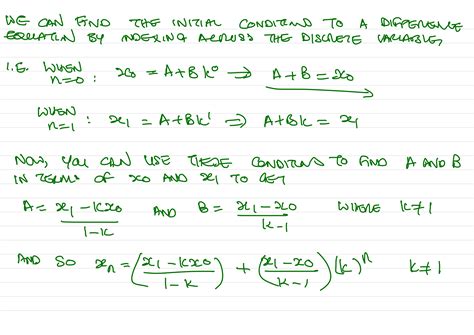 WE CAN FIND THE INITIAL CONDITIONS TO A DIFFERENCE
EQUATION BY INDEXING ACROSS THE DISCRETE VARIABLE,
I.E. WHEN n=0 : x₀ = A+Bk⁰ ⇒ A+B = x₀
WHEN n=1 : x₁ = A+Bk¹ ⇒ A+Bk = x₁
NOW, YOU CAN USE THESE CONDITIONS TO FIND A AND B
IN TERMS OF x₀ AND x₁ TO GET
A = (x₁ - kx₀)/(1-k) AND B = (x₁ - x₀)/(k-1) WHERE k≠1
AND SO xₙ = ((x₁ - kx₀)/(1-k)) + ((x₁ - x₀)/(k-1))(k)ⁿ k≠1